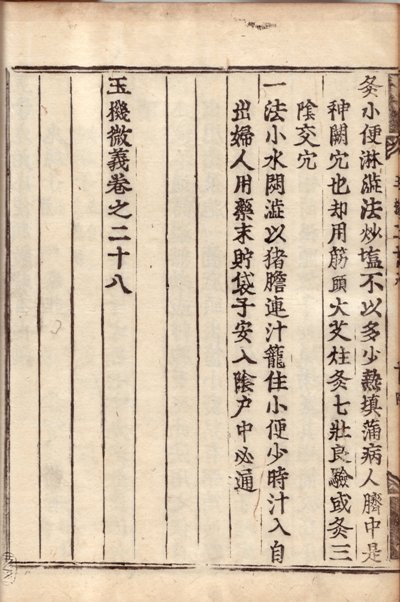 灸小便淋澁法炒塩不以多少熱填蒲病人臍中是
神闕穴也却用筋頭大艾炷灸七壯良驗或灸三
陰交穴
一法小水閉澁以猪膽連汁籠住小便少時汁入自
出婦人用藥末貯袋子安入陰户中必通
玉機微義卷之二十八